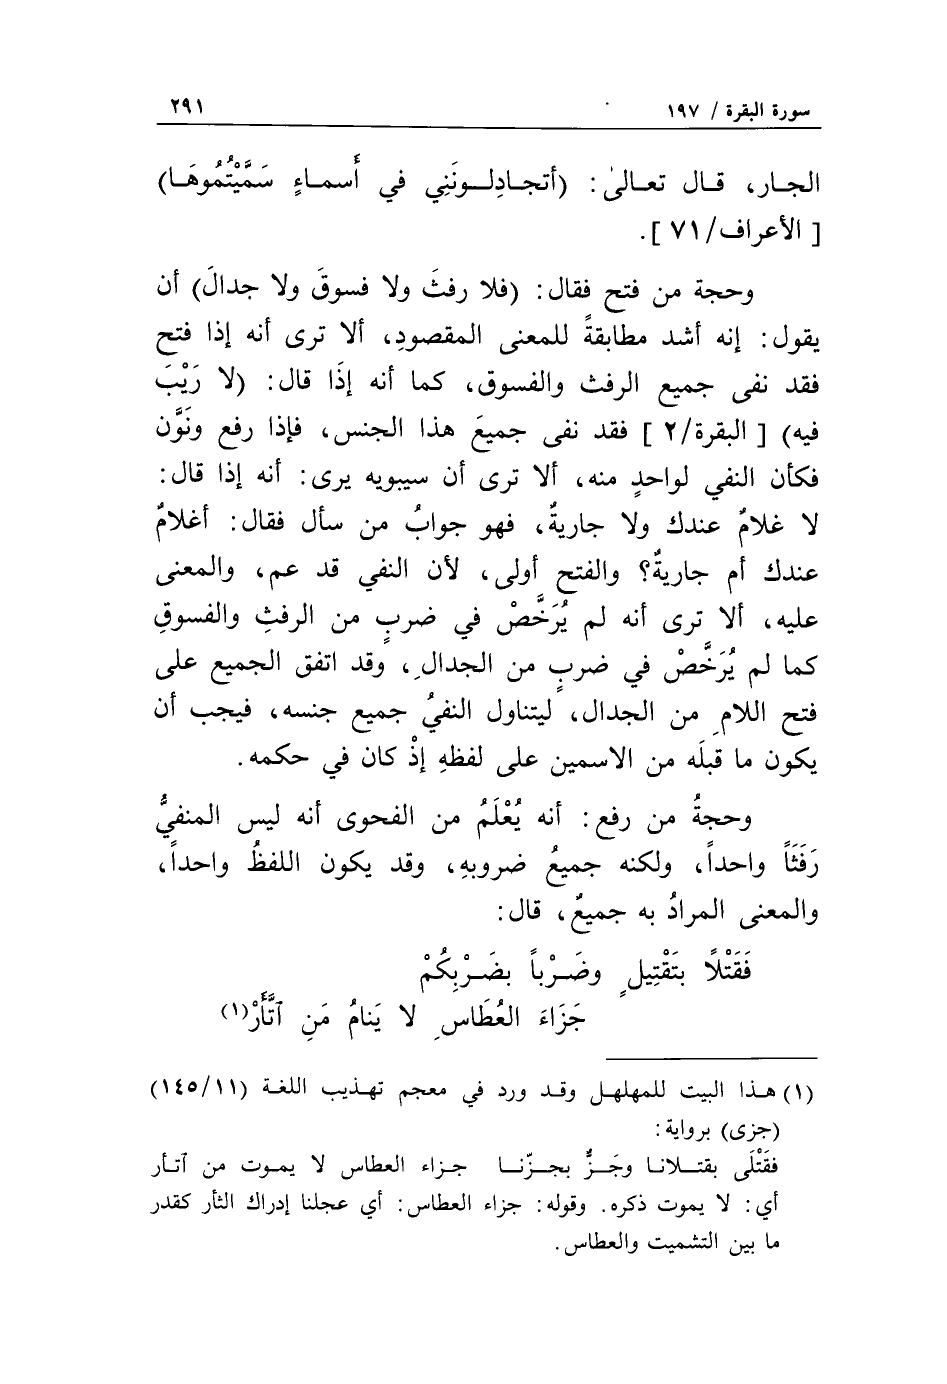 سورة البقرة / ١٩٧ ٢٩١
الجار، قال تعالىٰ: (أتجادِلونَنِي في أَسماءٍ سَمَّيْتُمُوهَا)
[ الأعراف/ ٧١ ].
وحجة من فتح فقال: (فلا رفثَ ولا فسوقَ ولا جدالَ) أن
يقول: إنه أشد مطابقةً للمعنى المقصودِ، ألا ترى أنه إذا فتح
فقد نفى جميع الرفث والفسوق، كما أنه إذَا قال: (لا رَيْبَ
فيه) [ البقرة/٢ ] فقد نفى جميعَ هذا الجنس، فإذا رفع ونَوَّن
فكأن النفي لواحدٍ منه، ألا ترى أن سيبويه يرى: أنه إذا قال:
لا غلامٌ عندك ولا جاريةٌ، فهو جوابُ من سأل فقال: أغلامٌ
عندك أم جاريةٌ؟ والفتح أولى، لأن النفي قد عم، والمعنى
عليه، ألا ترى أنه لم يُرَخَّصْ في ضربٍ من الرفثِ والفسوقِ
كما لم يُرَخَّصْ في ضربٍ من الجدالِ، وقد اتفق الجميع على
فتح اللامِ من الجدال، ليتناول النفيُ جميع جنسه، فيجب أن
يكون ما قبلَه من الاسمين على لفظهِ إذْ كان في حكمه.
وحجةُ من رفع: أنه يُعْلَمُ من الفحوى أنه ليس المنفيُّ
رَفَثَاً واحداً، ولكنه جميعُ ضروبهِ، وقد يكون اللفظُ واحداً،
والمعنى المرادُ به جميعٌ، قال:
فَقَتْلًا بتَقْتِيلٍ وضَرْباً بضَرْبِكُمْ
جَزَاءَ العُطَاسِ لا يَنامُ مَنِ ٱتَّأَرْ(١)
(١) هذا البيت للمهلهل وقد ورد في معجم تهذيب اللغة (١٤٥/١١)
(جزى) برواية:
فقَتْلَى بقتلانا وجَزٌّ بجزّنا جزاء العطاس لا يموت من ٱتأر
أي: لا يموت ذكره. وقوله: جزاء العطاس: أي عجلنا إدراك الثأر كقدر
ما بين التشميت والعطاس.